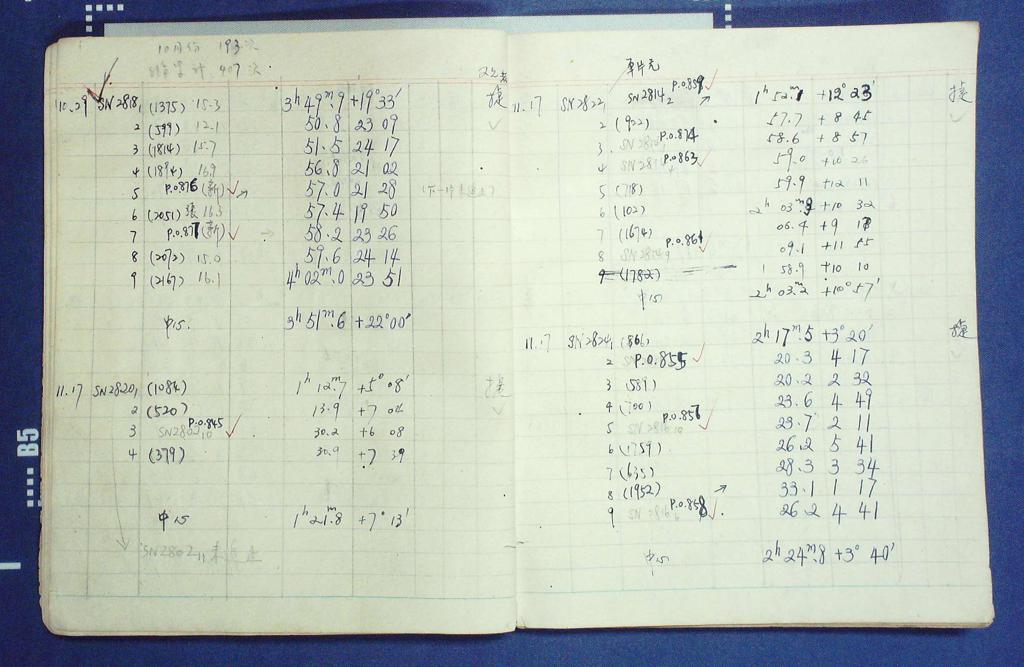 10月份 193次
407次
10.29 SN2818, (1375) 15.3 3ʰ 49ᵐ.9 +19° 33′
2 (599) 12.1 50.8 23 09
3 (1814) 15.7 51.5 24 17
4 (1894) 16.9 56.8 21 02
5 P.O.876 (新) 57.0 21 28
6 (2051) 16.3 57.4 19 50
7 P.O.877 (新) 58.2 23 26
8 (2072) 15.0 59.6 24 14
9 (2167) 16.1 4ʰ 02ᵐ.0 23 51
中心 3ʰ 51ᵐ.6 +22° 00′
11.17 SN2820, (1084) 1ʰ 12ᵐ.7 +5° 08′
2 (520) 13.9 +7 04
3 SN2802₁₀ P.O.845 30.2 +6 08
4 (379) 30.9 +7 39
中心 1ʰ 21ᵐ.8 +7° 13′
SN2802₁₁
11.17 SN2822, SN2814₂ P.O.859 1ʰ 52ᵐ.1 +12° 23′
2 (922) 57.7 +8 45
3 P.O.874 58.6 +8 57
4 P.O.863 59.0 +10 26
5 (718) 59.9 +12 11
6 (102) 2ʰ 03ᵐ.3 +10 32
7 (1674) 06.4 +9 17
8 P.O.861 09.1 +11 55
9 (1782) 1 58.9 +10 10
中心 2ʰ 03ᵐ.2 +10° 57′
11.17 SN2824, (866) 2ʰ 17ᵐ.5 +3° 20′
2 P.O.855 20.3 4 17
3 (589) 20.2 2 32
4 (700) 23.6 4 49
5 P.O.857 23.7 2 11
6 (1759) 26.2 5 41
7 (635) 28.3 3 34
8 (1952) 33.1 1 17
9 P.O.858 26.2 4 41
中心 2ʰ 24ᵐ.8 +3° 40′
B5